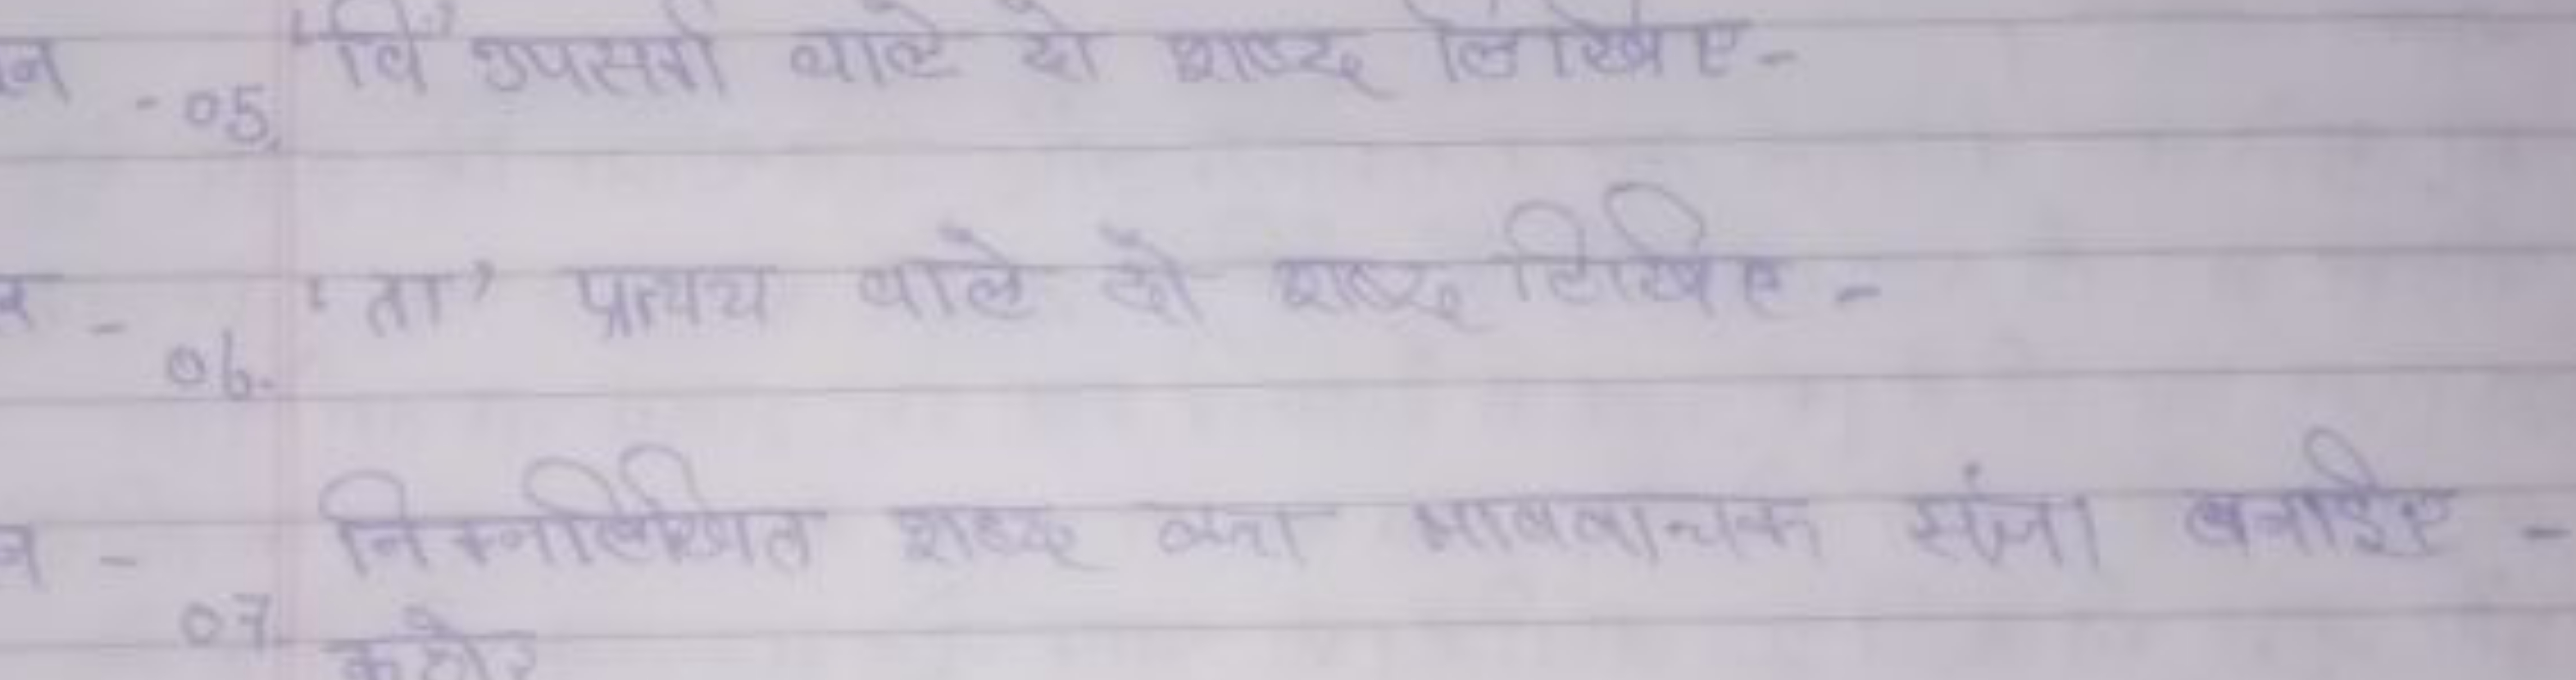 - 05. 'वि' उपसर्ग वाले दो शब्द लिखिए-
- 06. 'ता' प्रत्यय वाले दो शब्द लिखिए -
- 07. निम्नलिखित शब्द का भाववाचक संज्ञा बनाईए -
कठोर